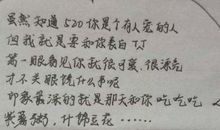 虽然知道520你是个有人宠的人
但我就是要和你表白了
第一眼看见你我很可爱，很漂亮
才不关眼镜什么事呢
印象最深的就是那天和你吃吃吃
紫薯粥，什锦豆花……